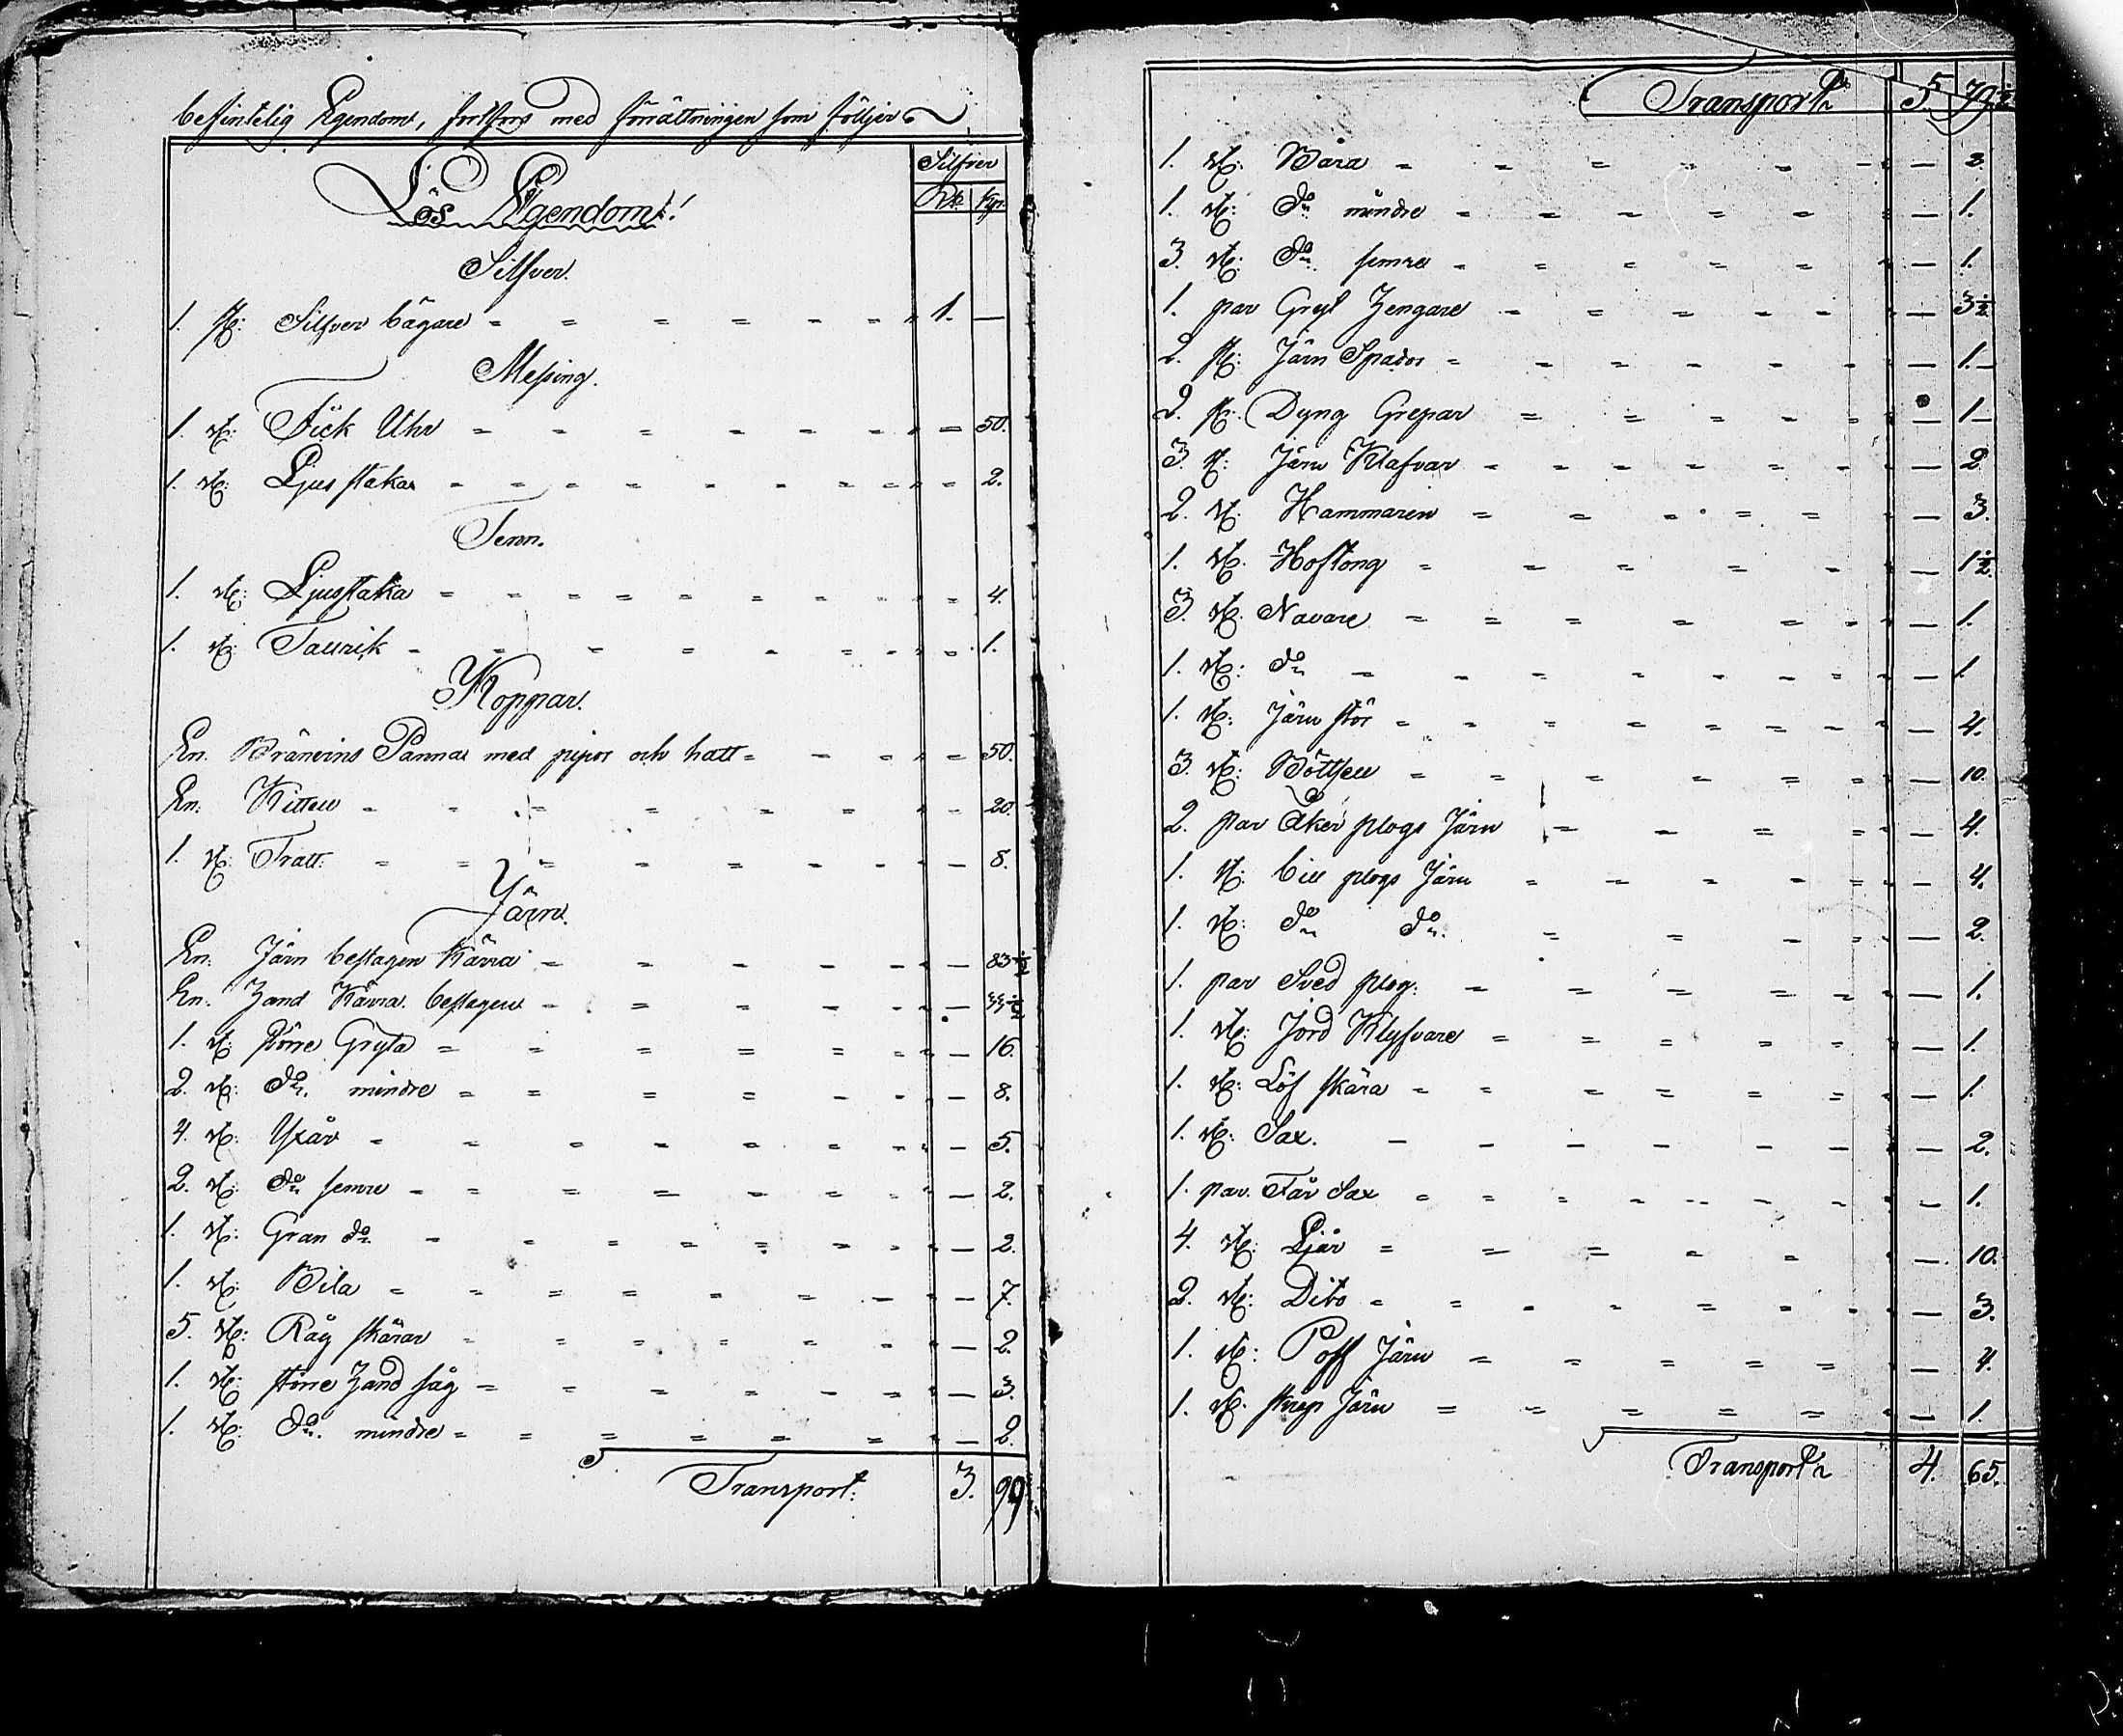 befintelig Egendom, fortfors med förrättningen som fölljer
Silfver
Rb. Kp.
Lös Egendom!
Silfver.
1. st: Silfver bägare 1. —
Messing.
1. st: Fick Uhr — 50.
1. st: Ljus stakar — 2.
Tenn.
1. st: Ljusstaka — 4.
1. st: Tallrik — 1.
Koppar.
En. Bränvins Panna med pipor och hatt — 50.
En. Kittell — 20.
1. st: Tratt. — 8.
Järn.
En. Järn beslagen Kärra — 83½
En. Hand Kärra beslagen — 33½
1. st: större Gryta — 16.
2. st: do. mindre — 8.
4. st: Yxår — 5.
2. st: do semre — 2.
1. st: Gran do — 2.
1. st: Bila — 7.
5. st: Råg skärar — 2.
1. st: större Hand såg — 3.
1. st: do. mindre — 2.
Transport: 3. 99
Transport 5. 79½
1. st: Båra — 2.
1. st: do mindre — 1.
3. st: do semre — 1.
1. par Gryt Hengare — 3½
2. st: Järn Spador — 1.
2. st: Dyng Grepar — 1
3. st: Järn Klafvar — 2
2. st: Hammaren — 3.
1. st: Hoftong — 1½.
3. st: Navare — 1.
1. st: do — 1.
1. st: Järn stör — 4.
3. st: Böttsell — 10.
2. par Åker plogs Järn — 4.
1. st: bill plogs Järn — 4.
1. st: do do. — 2.
1. par Sved plog. — 1.
1. st: Jord Klyfvare — 1.
1. st: Löf skära — 1.
1. st: Sax. — 2.
1. par. Får Sax — 1.
4. st: Ljår — 10.
2. st: Dito — 3.
1. st: Järn — 4.
1. st: Järn — 1.
Transport 4. 65.